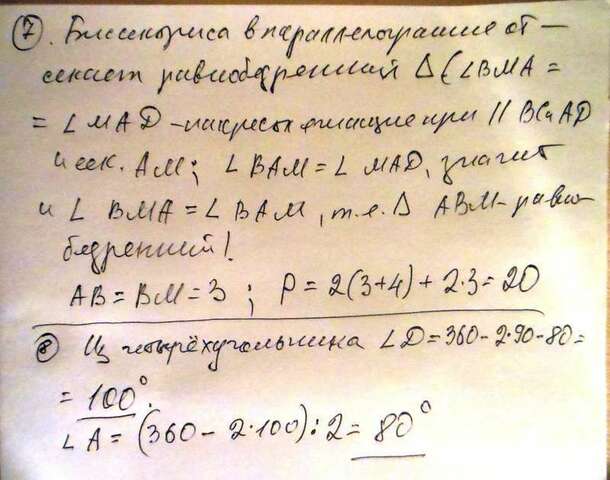 ⑦. Биссектриса в параллелограмме от-
секает равнобедренный Δ (∠BMA =
= ∠MAD - накрест лежащие при || BC и AD
и сек. AM; ∠BAM = ∠MAD, значит
и ∠BMA = ∠BAM, т.е. Δ ABM - равно-
бедренный!
AB = BM = 3; P = 2(3+4) + 2·3 = 20
⑧ Из четырёхугольника ∠D = 360 - 2·90 - 80 =
= 100°.
∠A = (360 - 2·100) : 2 = 80°